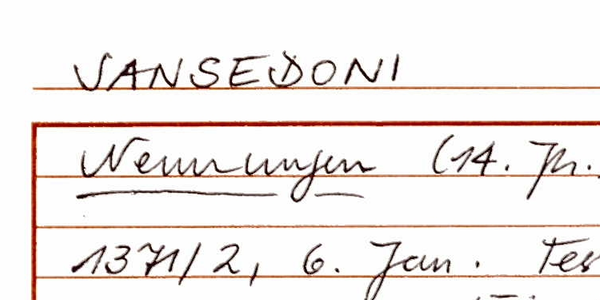 SANSEDONI
Nennungen (14. Jh.
1371/2, 6. Jan. Tes